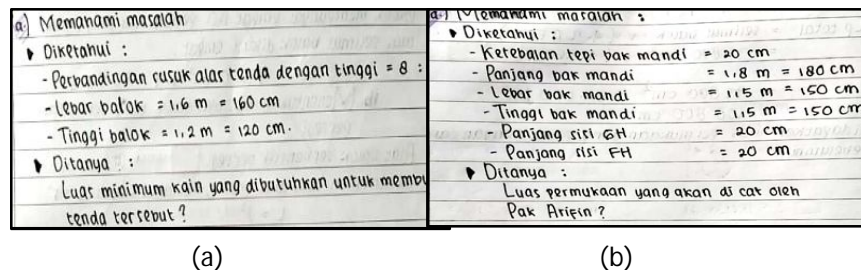 a.) Memahami masalah
Diketahui :
- Perbandingan rusuk alas tenda dengan tinggi = 8 :
- Lebar balok = 1,6 m = 160 cm
- Tinggi balok = 1,2 m = 120 cm.
Ditanya :
Luas minimum kain yang dibutuhkan untuk membu
tenda tersebut ?
(a)
a.) Memahami masalah :
Diketahui :
- Ketebalan tepi bak mandi = 20 cm
- Panjang bak mandi = 1,8 m = 180 cm
- Lebar bak mandi = 1,5 m = 150 cm
- Tinggi bak mandi = 1,5 m = 150 cm
- Panjang sisi GH = 20 cm
- Panjang sisi FH = 20 cm
Ditanya :
Luas permukaan yang akan di cat oleh
Pak Arifin ?
(b)